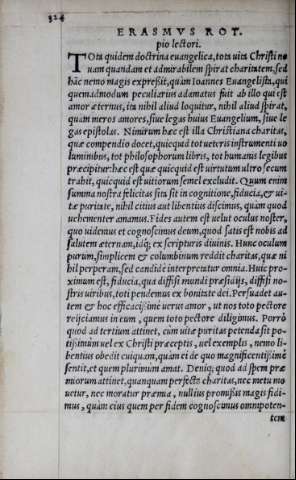 324
ERASMVS ROT.
pio lectori.
TOta quidem doctrina euangelica, tota uita Christi no
uam quandam et admirabilem spirat charitatem, sed
hāc nemo magis expreßit, quàm Ioannes Euangelista, qui
quemadmodum peculiarius adamatus fuit ab illo qui est
amor æternus, ita nihil aliud loquitur, nihil aliud spirat,
quàm meros amores, siue legas huius Euangelium, siue le
gas epistolas. Nimirum hæc est illa Christiana charitas,
quæ compendio docet, quicquid tot ueteris instrumenti uo
luminibus, tot philosophorum libris, tot humanis legibus
præcipitur: hæc est quæ quicquid est uirtutum ultro secum
trahit, quicquid est uitiorum semel excludit. Quum enim
summa nostra felicitas sita sit in cognitione, fiducia, & ui-
tæ puritate, nihil citius aut libentius discimus, quàm quod
uehementer amamus. Fides autem est uelut oculus noster,
quo uidemus et cognoscimus deum, quod satis est nobis ad
salutem æternam, idq; ex scripturis diuinis. Hunc oculum
purum, simplicem & columbinum reddit charitas, quæ ni
hil perperam, sed candide interpretatur omnia. Huic pro-
ximum est, fiducia, qua diffisi mundi præsidijs, diffisi no-
stris uiribus, toti pendemus ex bonitate dei. Persuadet au-
tem & hoc efficacißimè uerus amor, ut nos toto pectore
reijciamus in eum, quem toto pectore diligimus. Porrò
quod ad tertium attinet, cùm uitæ puritas petenda sit po-
tißimùm uel ex Christi præceptis, uel exemplis, nemo li-
bentius obedit cuiquam, quàm ei de quo magnificentißimè
sentit, et quem plurimùm amat. Deniq; quod ad spem præ
miorum attinet, quanquam perfecta charitas, nec metu mo
uetur, nec moratur præmia, nullius promißis magis fidi-
mus, quàm eius quem per fidem cognoscimus omnipoten-
tem